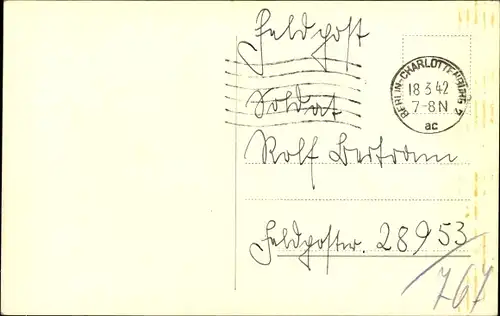 Feldpost
BERLIN-CHARLOTTENBURG 2
18.3.42
7-8N
ac
Soldat
Rolf Bertram
Feldpostnr. 28953
767